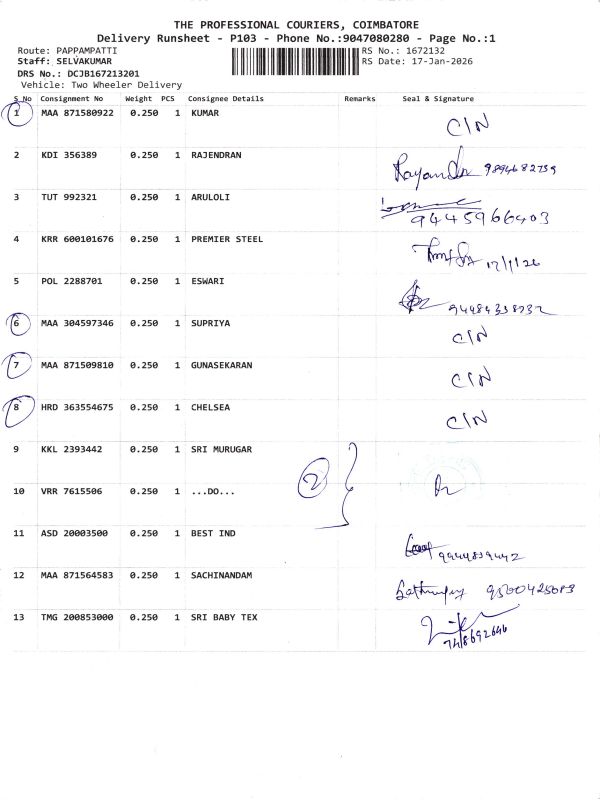 THE PROFESSIONAL COURIERS, COIMBATORE
Delivery Runsheet - P103 - Phone No.:9047080280 - Page No.:1
Route: PAPPAMPATTI RS No.: 1672132
Staff: SELVAKUMAR RS Date: 17-Jan-2026
DRS No.: DCJB167213201
Vehicle: Two Wheeler Delivery
S No Consignment No Weight PCS Consignee Details Remarks Seal & Signature
1 MAA 871580922 0.250 1 KUMAR C/N
2 KDI 356389 0.250 1 RAJENDRAN 9894682759
3 TUT 992321 0.250 1 ARULOLI 9445966403
4 KRR 600101676 0.250 1 PREMIER STEEL 17/1/26
5 POL 2288701 0.250 1 ESWARI
6 MAA 304597346 0.250 1 SUPRIYA C/N
7 MAA 871509810 0.250 1 GUNASEKARAN C/N
8 HRD 363554675 0.250 1 CHELSEA C/N
9 KKL 2393442 0.250 1 SRI MURUGAR
2
10 VRR 7615506 0.250 1 ...DO...
11 ASD 20003500 0.250 1 BEST IND 9944839442
12 MAA 871564583 0.250 1 SACHINANDAM
13 TMG 200853000 0.250 1 SRI BABY TEX